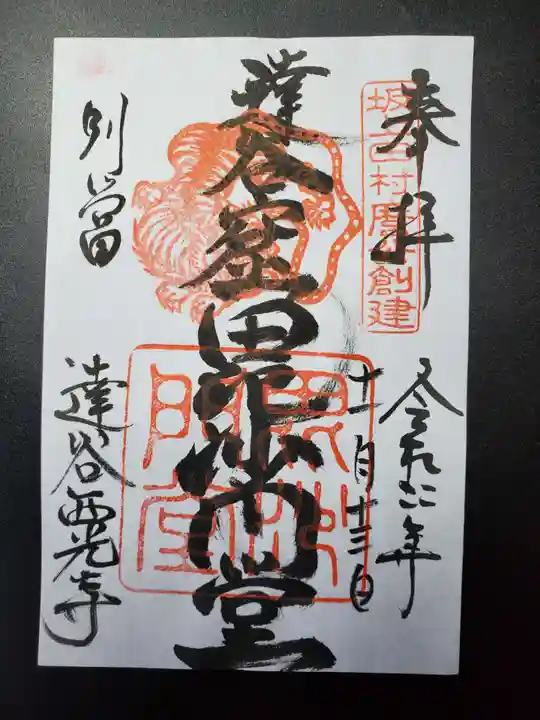 奉拝
坂上田村麿公創建
令和二年
十一月十三日
達谷窟毘沙門堂
毘沙門堂
別當
達谷西光寺